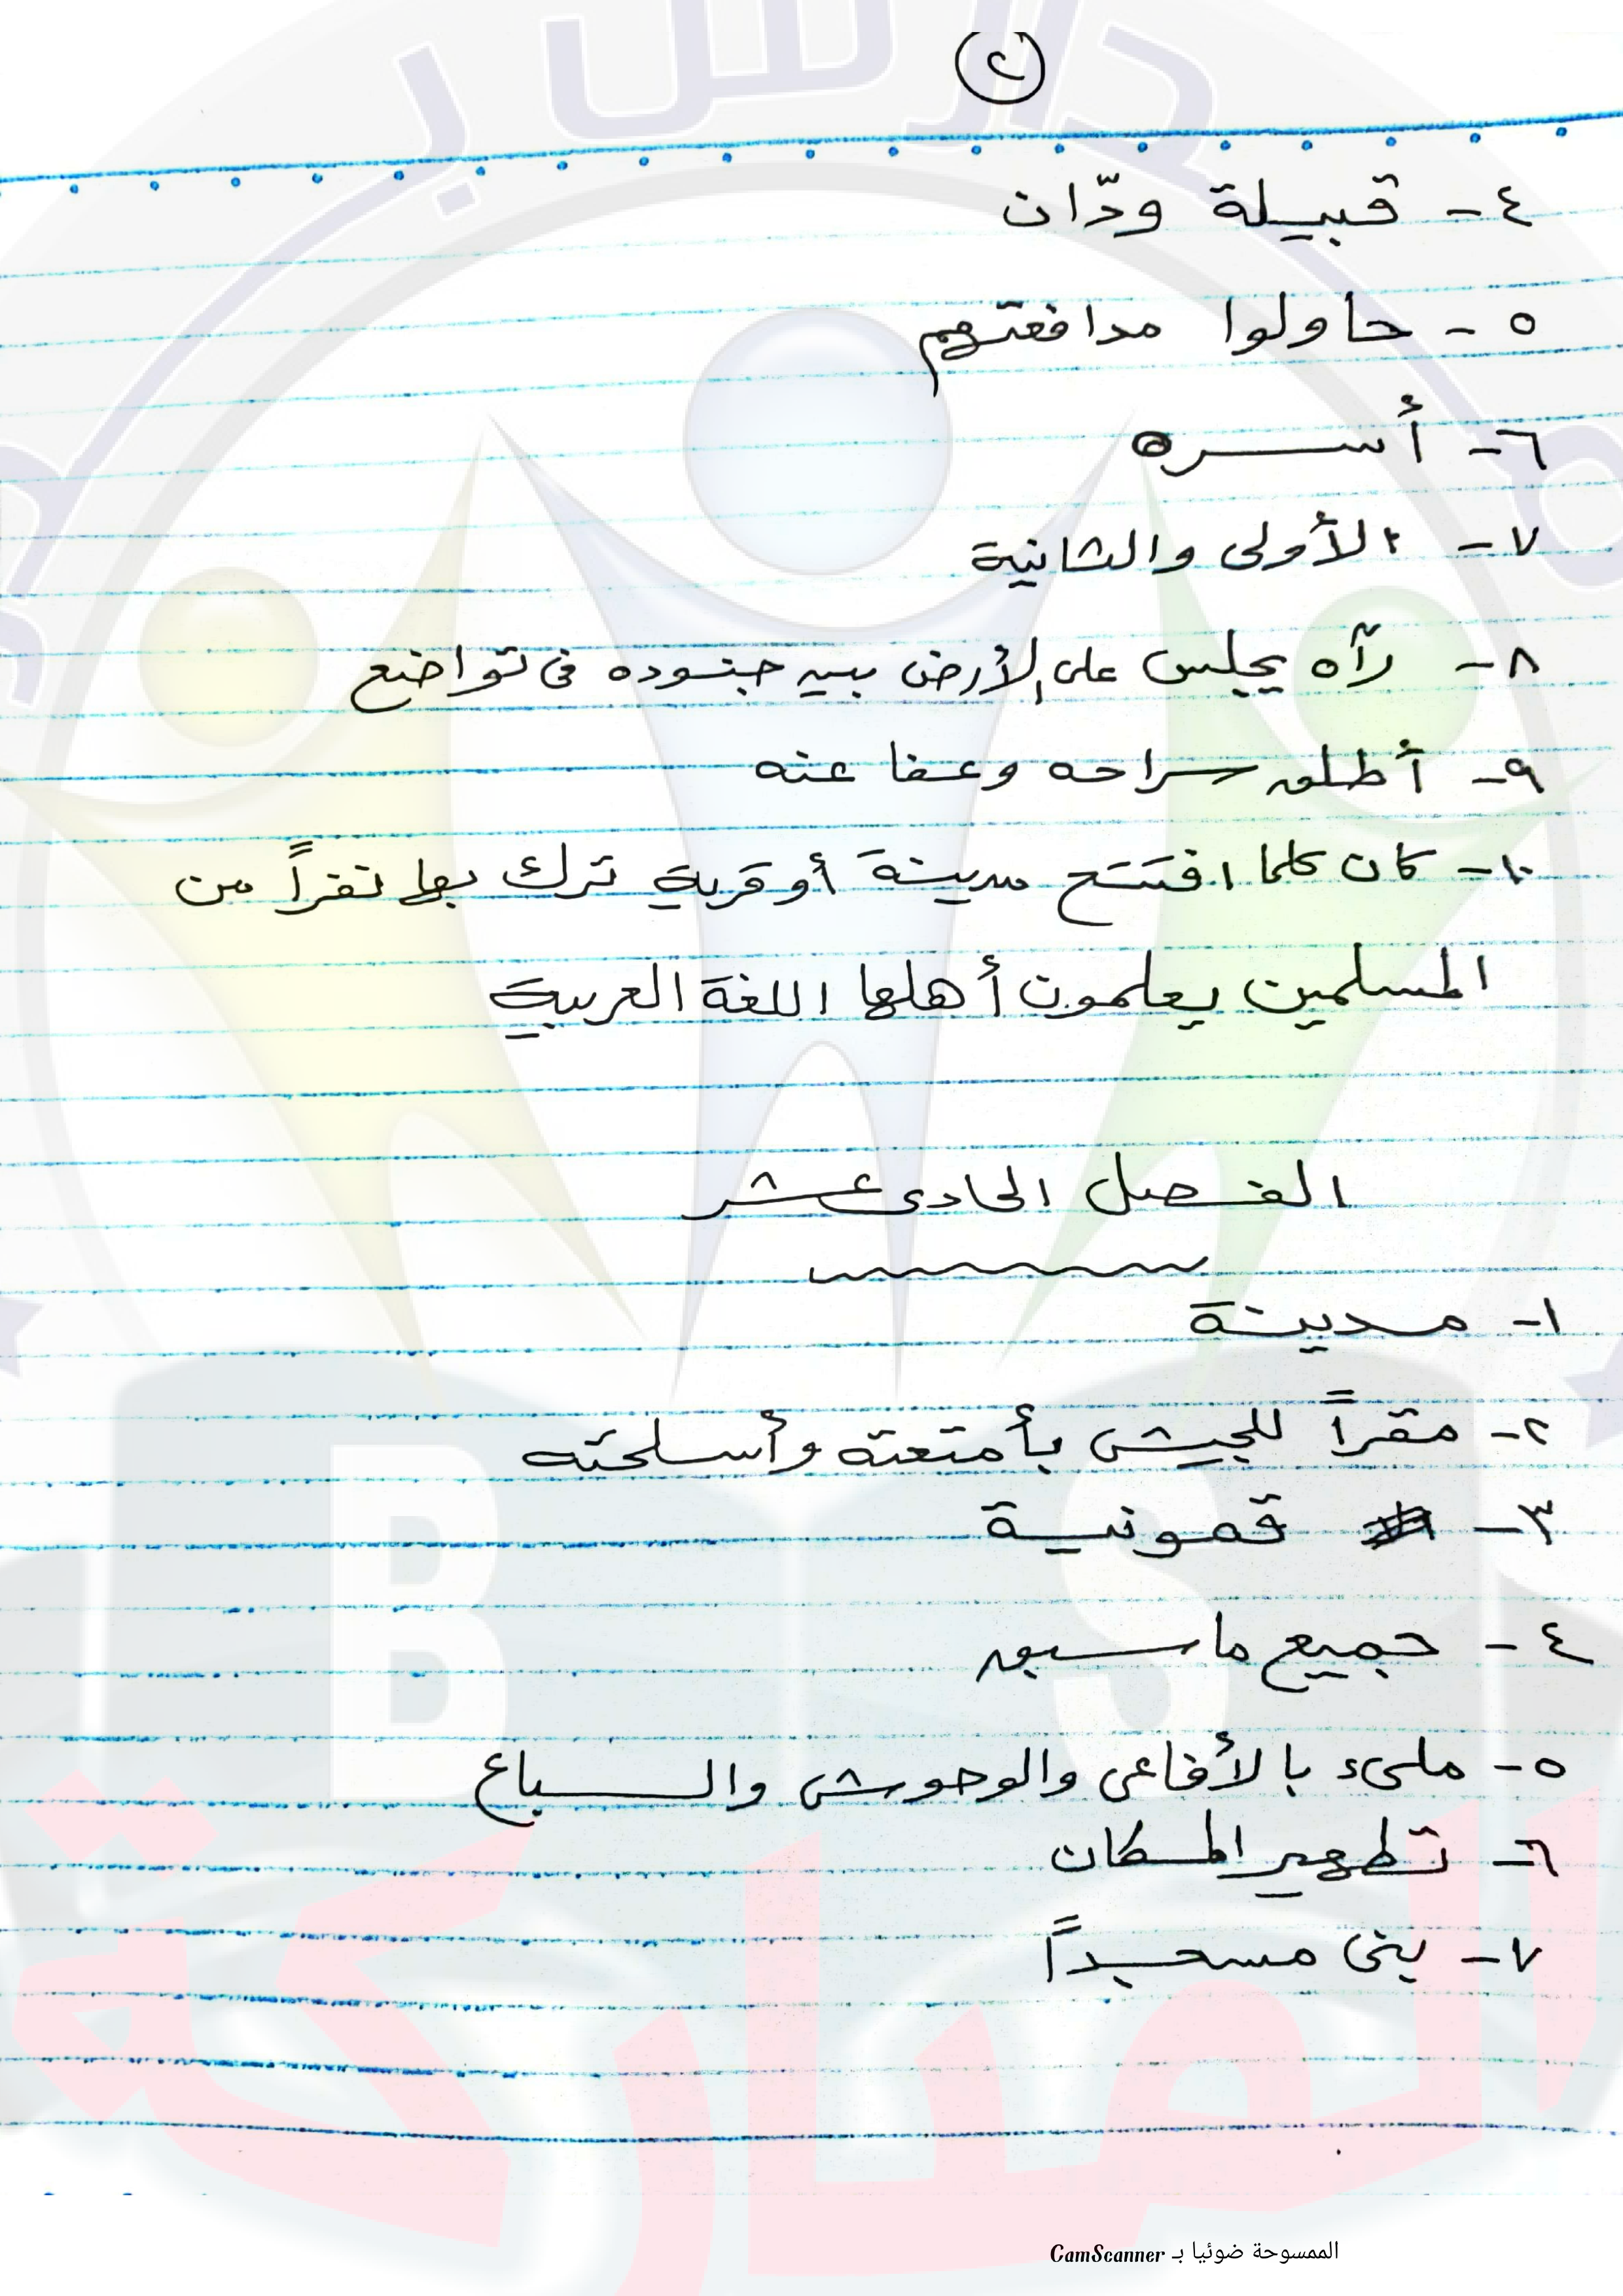 ٢
٤- قبيلة ودّان
٥- حاولوا مدافعتهم
٦- أسره
٧- الأولى والثانية
٨- رآه يجلس على الأرض بين جنوده فى تواضع
٩- أطلق سراحه وعفا عنه
١٠- كان كلما افتتح مدينة أو قرية ترك بها نفراً من
المسلمين يعلمون أهلها اللغة العربية
الفصل الحادى عشر
١- مدينة
٢- مقراً للجيش بأمتعته وأسلحته
٣- قمونية
٤- جميع ما سبق
٥- ملىء بالأفاعى والوحوش والسباع
٦- تطهير المكان
٧- بنى مسجداً
B S
المباركة
الممسوحة ضوئيا بـ CamScanner